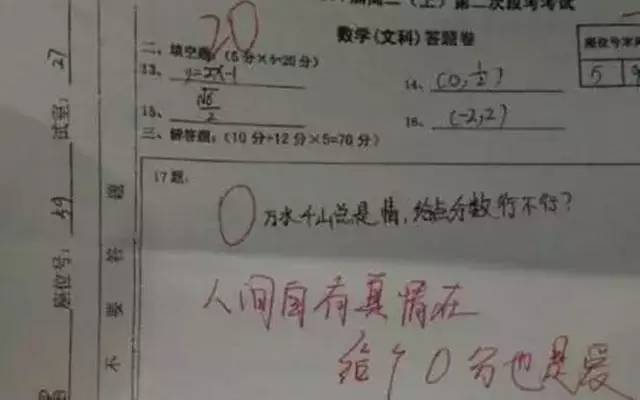 (上)第二次段考考试
数学(文科)答题卷
20
二、填空题:(5分×4=20分)
13、y=2x-1
14、(0,1/2)
15、√6/2
16、(-2,2)
三、解答题:(10分+12分×5=70分)
17题:
0
万水千山总是情,给点分数行不行?
人间自有真情在
给个0分也是爱
座位号末
5
试室: 27
座位号: 59
不要答题